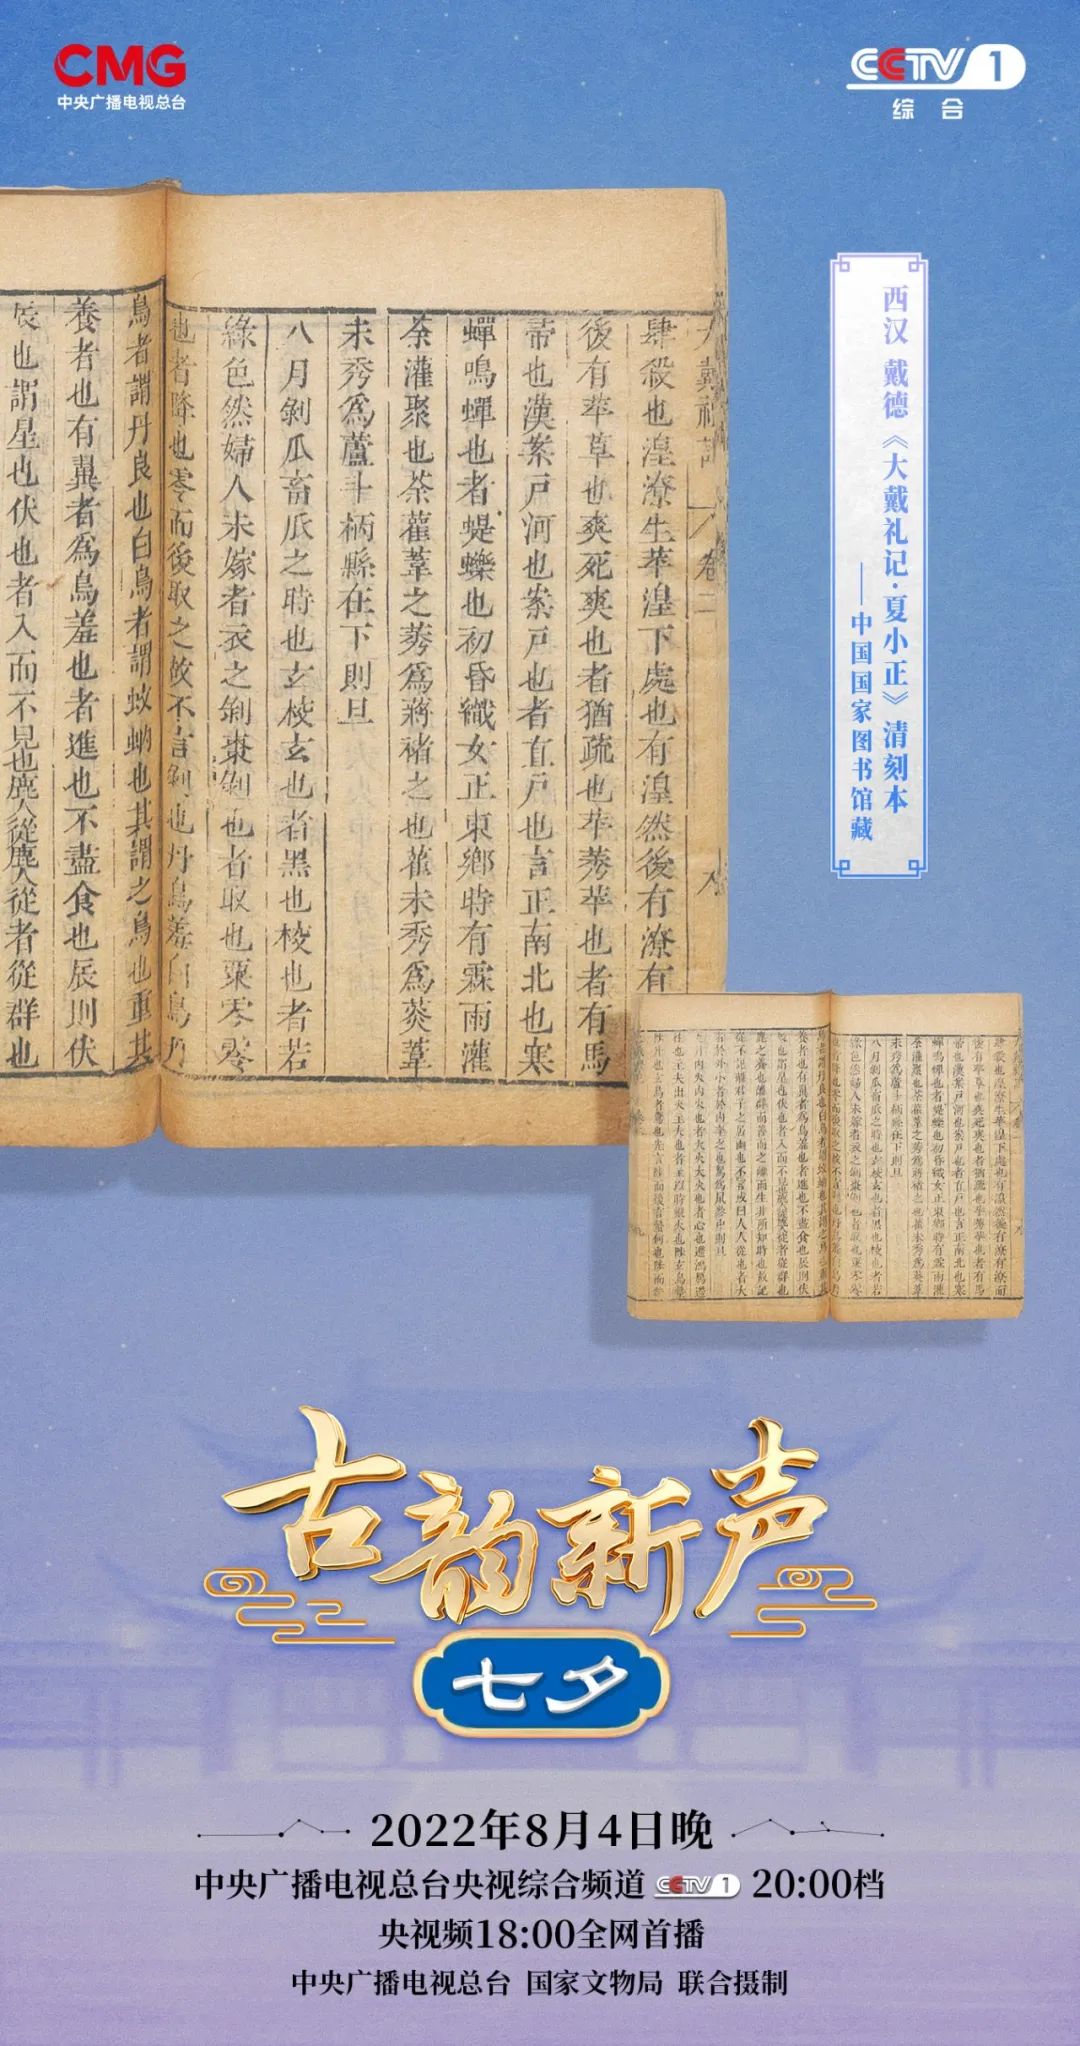 CMG
中央广播电视总台
CCTV 1
综合
西汉 戴德《大戴礼记·夏小正》清刻本
——中国国家图书馆藏
大戴礼记 卷二
肆殺也湟潦生苹湟下處也有湟然後有潦有
後有苹草也爽死爽也者猶疏也苹莠苹也者有馬
帚也漢案戸河也案戸也者直戸也言正南北也寒
蟬鳴蟬也者蝭蠑也初昏織女正東鄉時有霖雨灌
荼灌聚也荼雚葦之莠爲蔣褚之也雚未秀爲菼葦
未秀爲蘆斗柄縣在下則旦
八月剝瓜畜瓜之時也玄校玄也者黑也校也者若
綠色然婦人未嫁者衣之剝棗剝也者取也粟零零
也者降也零而後取之故不言剝也丹鳥羞白鳥丹
鳥者謂丹良也白鳥者謂蚊蚋也其謂之鳥也重其
養者也有翼者爲鳥羞也者進也不盡食也辰則伏
辰也謂星也伏也者入而不見也鹿人從鹿人從者從群也
古韵新声
七夕
2022年8月4日晚
中央广播电视总台央视综合频道 CCTV 1 20:00档
央视频18:00全网首播
中央广播电视总台 国家文物局 联合摄制